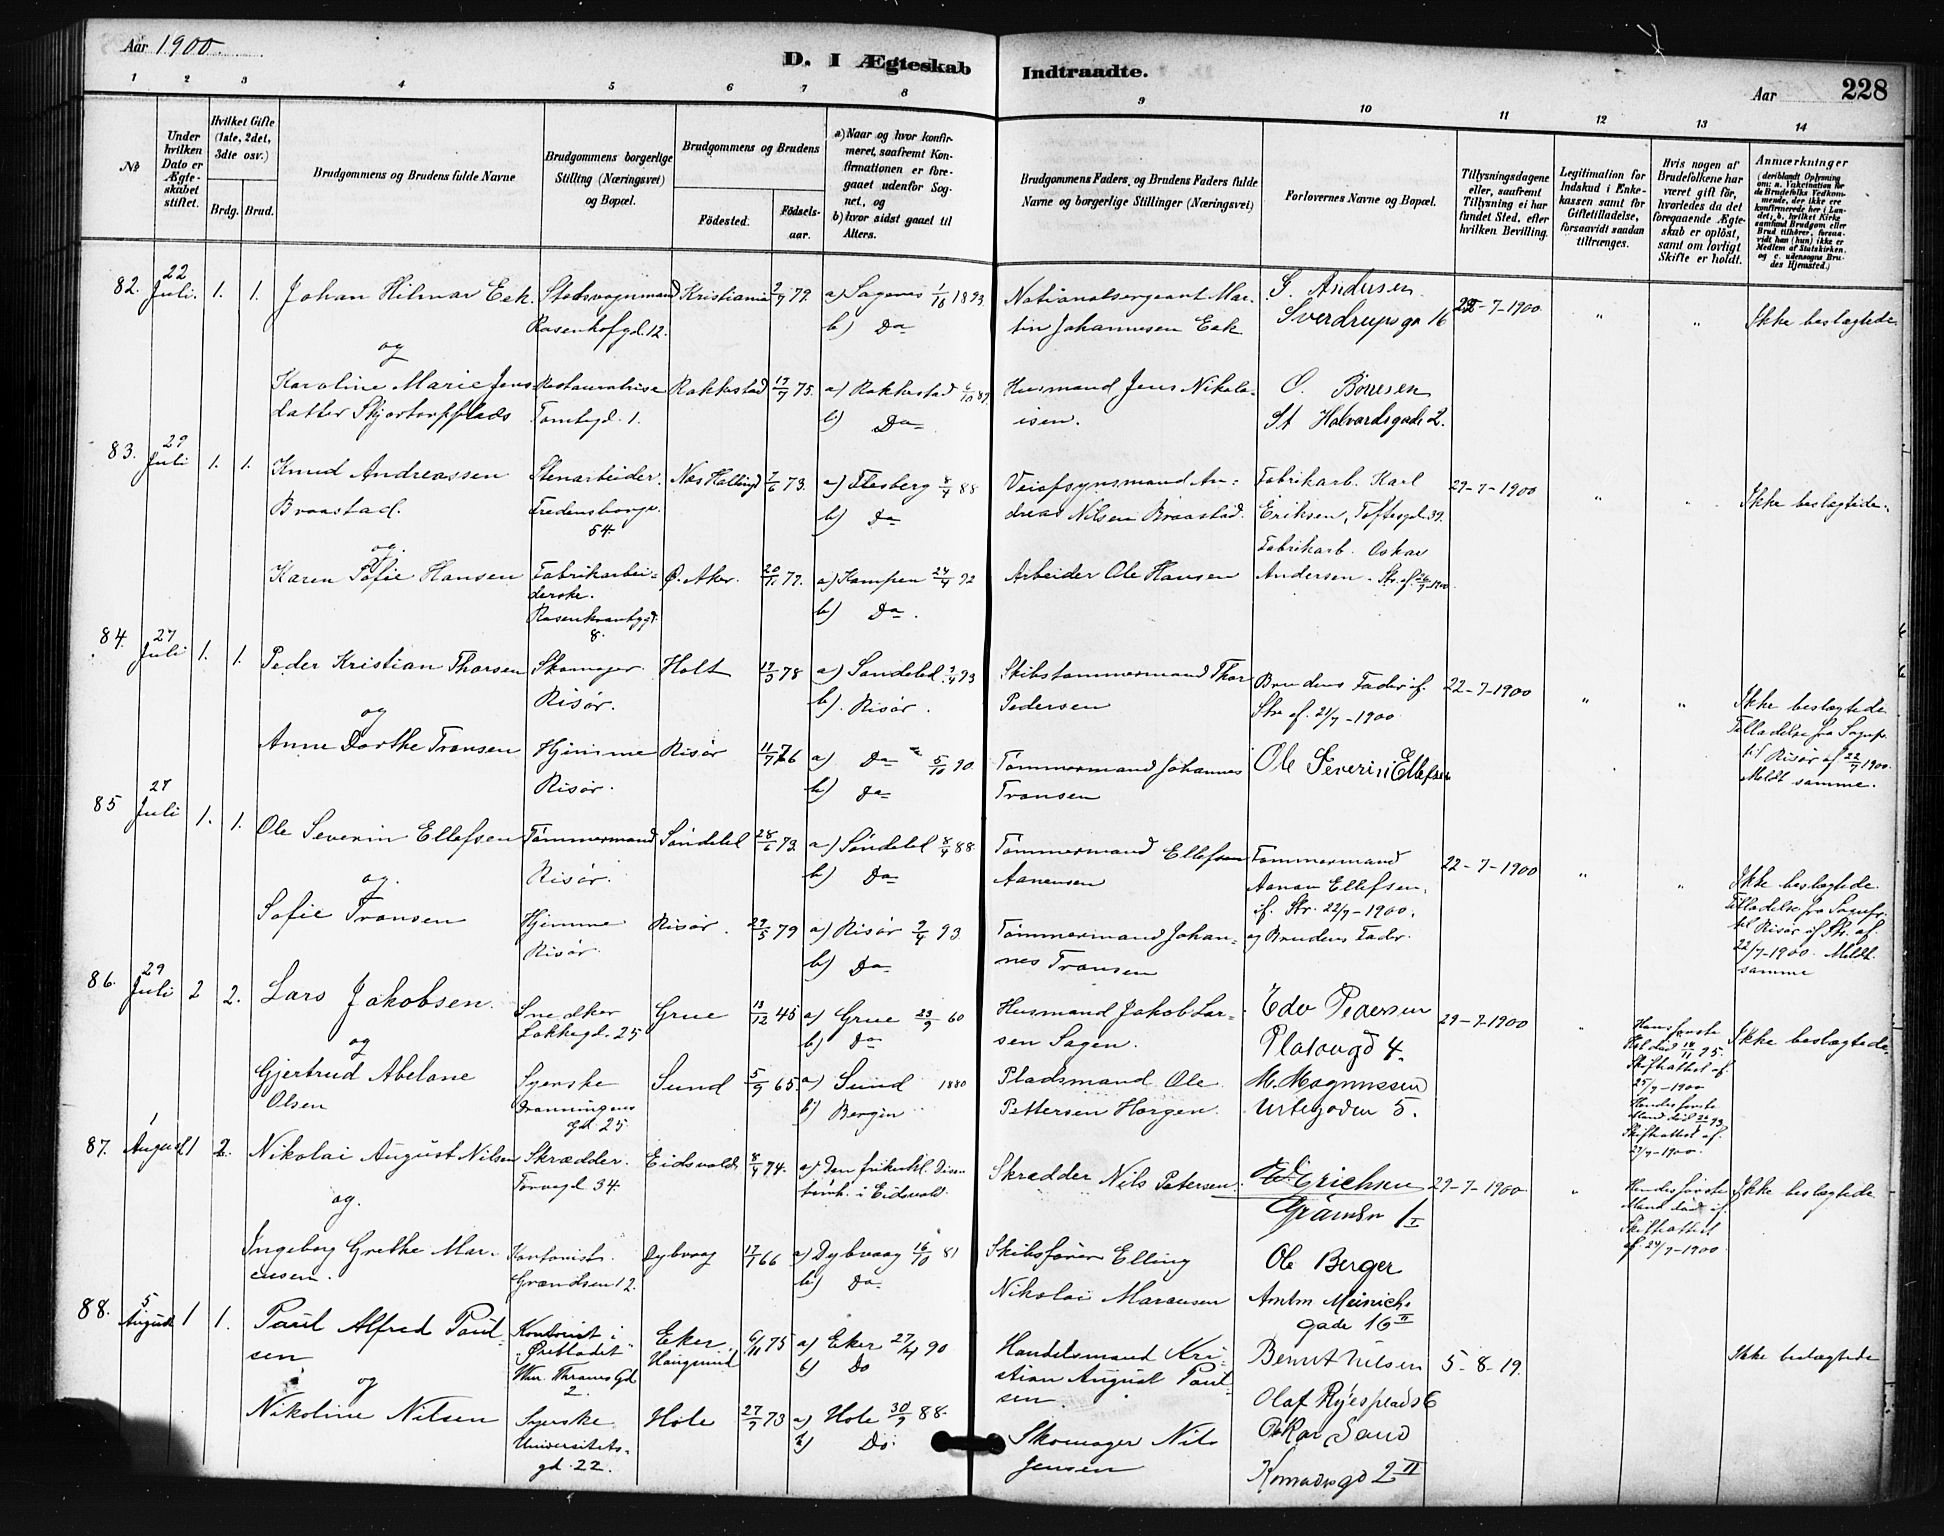 Aar 1900.
D. I Ægteskab
Indtraadte.
Aar
228
1 2 3 4 5 6 7 8
9 10 11 12 13 14
№
Under hvilken Dato er Ægteskabet stiftet.
Hvilket Gifte (1ste, 2det, 3dte osv.)
Brdg. Brud.
Brudgommens og Brudens fulde Navne
Brudgommens borgerlige Stilling (Næringsvei) og Bopæl.
Brudgommens og Brudens
Fødested. Fødselsaar.
a) Naar og hvor konfirmeret, saafremt Konfirmationen er foregaaet udenfor Sognet, og
b) hvor sidst gaaet til Alters.
Brudgommens Faders og Brudens Faders fulde Navne og borgerlige Stillinger (Næringsvei)
Forlovernes Navne og Bopæl.
Tillysningsdagene eller, saafremt Tillysning ei har fundet Sted, efter hvilken Bevilling.
Legitimation for Indskud i Enkekassen samt for Giftetilladelse, forsaavidt saadan tiltrænges.
Hvis nogen af Brudefolkene har været gift før, hvorledes da det foregaaende Ægteskab er opløst, samt om lovligt Skifte er holdt.
Anmærkninger
(deriblandt Oplysning om: a. Vakcination for de Brudefolks Vedkommende, der ikke ere konfirmerede her i Landet; b. hvilket Kirkesamfund Brudgom eller Brud tilhører, forsaavidt han (hun) ikke er Medlem af Statskirken, og c. udensogns Brudes Hjemsted.)
82. 22 Juli. 1. 1. Johan Hilmar Eek. Rosenhofgd. 12. Kristiania 2/7 79. a) Sagenes 1/10 1893. b) Do
Nationalsergeant Martin Johannesen Eek
Andersen Sverdrupsga 16 -7-1900 " " Ikke beslægtede
og
Karoline Marie Jensdatter Rakkestad 75. a) Rakkestad b) Do
Husmand Jens Nikolaisen.
St Halvardsgade 2.
83. 29 Juli 1. 1. Knud Andreassen Braastad. Stenarbeider. Fredensborgv. 54. 73. a) Flesberg 8/4 88 b) Do
Veiopsynsmand Andreas Nilsen Braastad.
Fabrikarb. Karl Eriksen, Toftesgd. 39. 29-7-1900 " " Ikke beslægtede.
og.
Karen Sofie Hansen Fabrikarbeiderske. 8. Ø. Aker. a) Kampen 24/4 92 b) Do.
Arbeider Ole Hansen
Fabrikarb. Oskar Andersen.
84. 27 Juli 1. 1. Peder Kristian Thorsen Skomager. Risør. Holt 78 a) Søndeled 93 b) Risør.
Skibstømmermand Thor Pedersen
Brudens Fader if. Skr. af. 21/7-1900 22-7-1900 " " Ikke beslægtede Tilladelse fra Sognepr. til Risør af 22/7 1900. Meldt samme.
og
Anne Dorthe Transen Hjemme Risør. Risør a) Do 5/10 90. b) Do
Tømmermand Johannes Transen
Ole Severin Ellefsen
85 27 Juli 1. 1. Ole Severin Ellefsen Tømmermand Risør. Søndeled 28/6 73. a) Søndeled 8/4 88. b) Do
Tømmermand Ellefsen Aanensen
Tømmermand Aanon Ellefsen, if. Skr. 22/7-1900. og Brudens Fader. 22-7-1900 " " Ikke beslægtede. Tilladelse fra Sognepr. til Risør if Skr. af. 22/7-1900. Meldt samme
og.
Sofie Transen Hjemme Risør. Risør. 29/5 79 a) Risør 9/4 93. b) Do
Tømmermand Johannes Transen
86. 29 Juli 2 2. Lars Jakobsen. Snedker Løkkegd. 25 Grue 13/12 45 a) Grue 23/9 60 b) Do
Husmand Jakob Larsen Sagen.
Edv Pedersen Platougd 4. 29-7-1900 " Hans første Skifteattest af 25/7-1900 Hendes første Mand død Skifteattest af. 27/7-1900. Ikke beslægtede.
og
Gjertrud Abelone Olsen Syerske Dronningens Gd. 25. Sund 5/9 65. a) Sund 1880 b) Bergen
Pladsmand Ole Pettersen Horgen.
M. Magnussen Urtegaden 5.
87. 1 August 1 2. Nikolai August Nilsen Skrædder. Torvegd. 34. Eidsvold 74. a) Den frikirkl. i Eidsvold.
Skrædder Nils Petersen.
Erichsen Grændsen 1 I 29-7-1900 " Hendes første Mand død if. Skifteattest af. 24/7-1900. Ikke beslægtede
og.
Ingeborg Grethe Marcusen. Grændsen 12. Dybvaag 17/7 66 a) Dybvaag 16/10 81 b) Do.
Skibsfører Elling Nikolai Marcusen
Ole Berger Amtm Meinichs gade 16 II
88. 5 August 1 1. Paul Alfred Paulsen Kontorist i "Ørebladet" Mar. Thranes Gd 2. Eker Haugsund 6/11 75 a) Eker 27/4 90 b) Do
Handelsmand Kristian August Paulsen.
Bernt Nilsen Olaf Ryesplads 6 5-8-19. Ikke beslægtede
og
Nikoline Nilsen Syerske Universitetsgd. 22. Hole 27/9 73 a) Hole 30/9 88. b) Do.
Skomager Nils Jensen
Oskar Sand 2 II